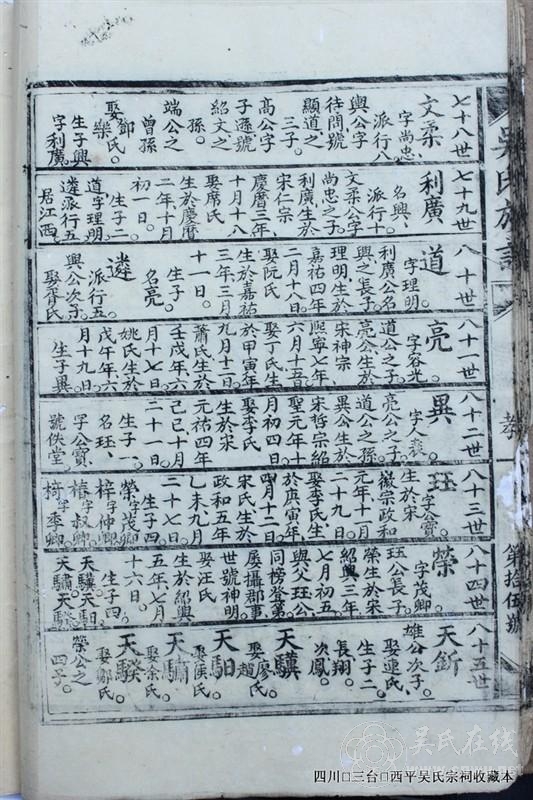 吳氏族譜
第拾伍號
七十八世
文柔 字尚忠。
派行八
與公字
待問號
顯道之
三子。
高公字
子遜號
紹文之
孫。
端公之
曾孫
娶鄧氏。樂
生子興
字利廣。
七十九世
利廣 名興、
派行十。
文柔公字
尚忠之子。
利廣生於
宋仁宗
慶曆三年、
十月十八
娶席氏
生於慶曆
二年、十月
初一日。
生子二
道字理明
遴派行五
居江西。
八十世
道 字理明。
利廣公名
興之長子
理明生於
嘉祐四年
二月十八日。
娶阮氏
生於嘉祐
三年、三月
十一日。
生子。
名亮。
遴 派行五。
興公次子
娶齊氏
八十一世
亮。字容光
道公之子。
亮公生於
宋神宗
熙寧七年、
六月十五日
娶丁氏生
於甲寅年
九月十二日。
蕭氏生於
壬戌年、六
月十七日。
姚氏生於
戊午年、六
月十九日。
生子異
八十二世
異 字人表。
亮公之子
道公之孫
異公生於
宋哲宗紹
聖元年十
月初四日
娶李氏
生於宋
元祐四年
己巳十月
二十一日。
生子一。
名珏、
字公寶、
號佚堂
八十三世
珏 字公寶。
生於宋
徽宗政和
元年、十月
二十九日。
娶李氏、生
於庚寅年、
四月十二日
宋氏生於
政和五年
乙未、九月
二十七日。
生子四
榮字茂卿
梓字仲卿。
椿字叔卿。
椅字季卿。
八十四世
榮 字茂卿。
珏公長子
榮生於宋
紹興三年、
七月初五
與父珏公
同榜登第
屢攝郡事
世號神明
娶汪氏
生於紹興
五年、七月
十六日。
生子四。
天驥天馹。
天驌天騤。
八十五世
天釿
雄公次子。
娶連氏
生子二。
長翔。
次鳳。
天驥
娶廖氏。趙
天馹
娶侯氏。
天驌
娶余氏。
天騤
娶鄒氏
榮公之
四子。
吴氏在线
四川□三台□西平吴氏宗祠收藏本